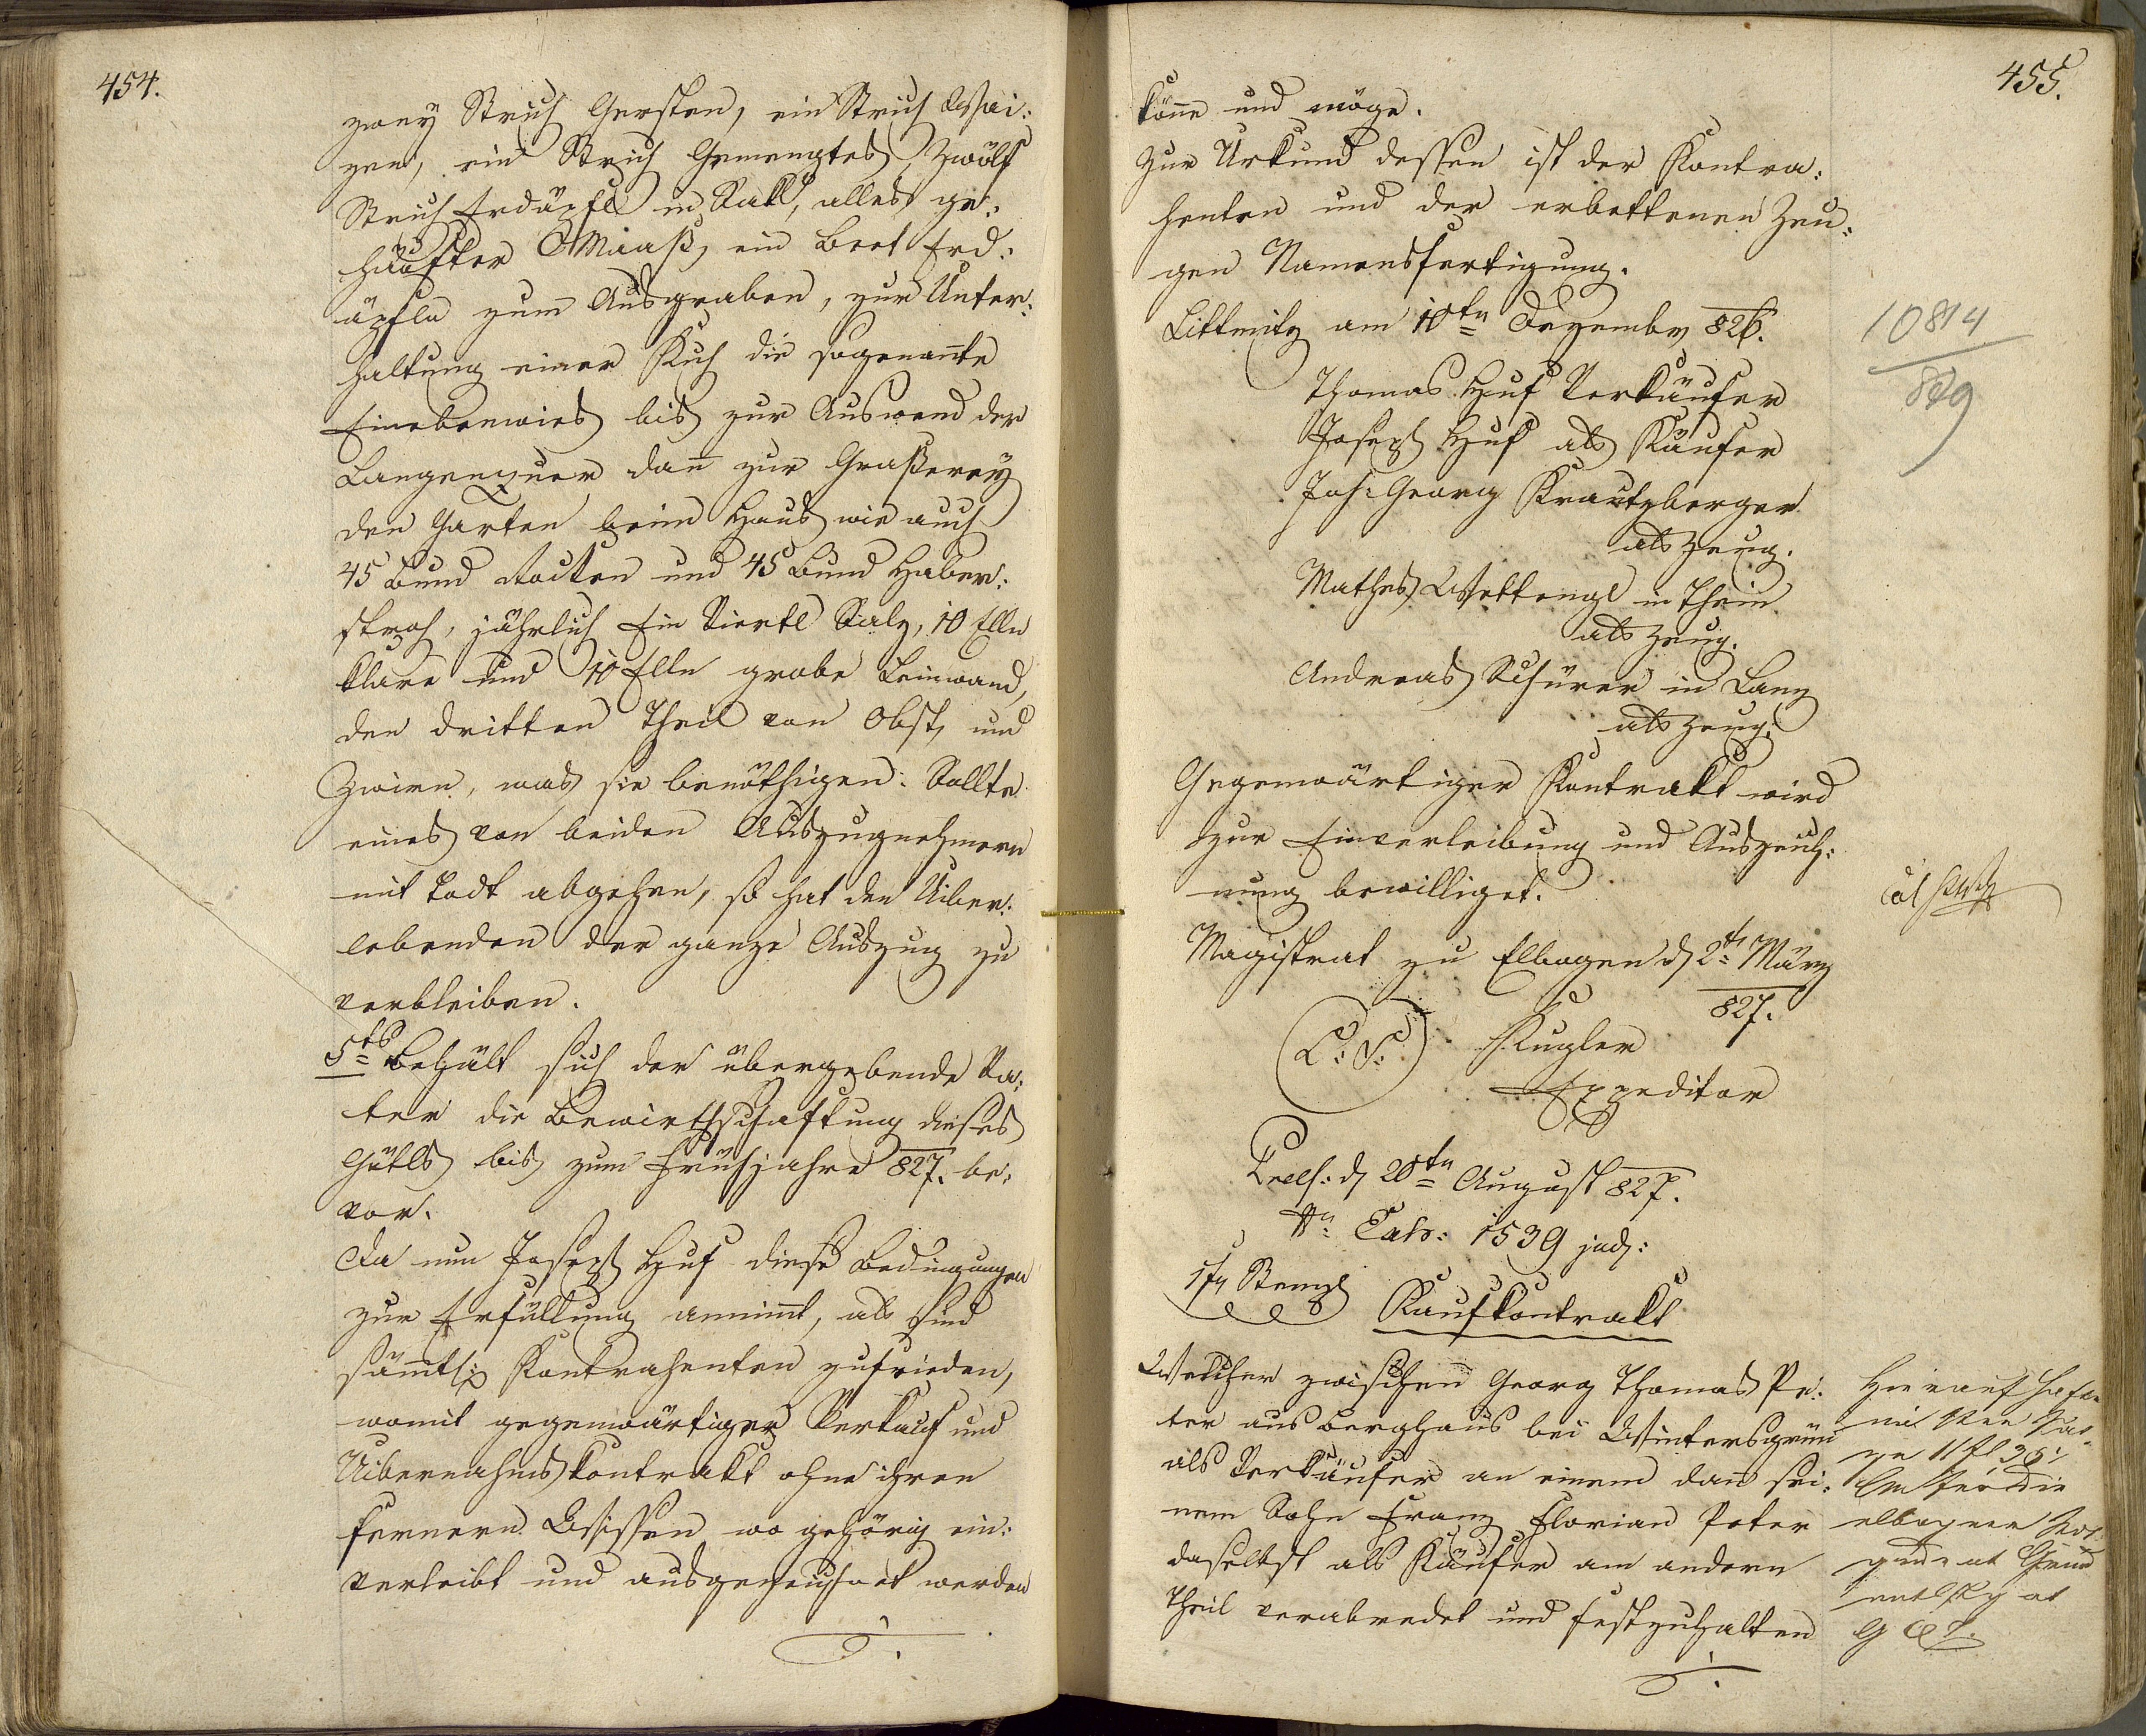 454.
zwey Strich Gersten, ein Strich Wai:
zen, ein Strich Gemengtes, Zwölf
Strich Erdäpfl in Sakl, alles ge:
häufter Maaß, ein Beet Erd:
äpfln zum Ausgraben, zur Unter:
haltung einer Kuh die sogenan̄te
Einebenwies bis zur Auswend der
Langenquer dan̄ zur Graßerey
den Garten beim Haus, wie auch
45 Bund und 45 Bund Haber:
stroh, jährlich Ein Viertl Salz, 10 Elln
klare und 10 Elln grobe Leinwand,
den dritten Theil von Obst, und
Zwirn, was sie benöthigen. Sollte
eines von beiden Auszugnehmern
mit Todt abgehen, so hat den Uiber:
lebenden der ganze Auszug zu
verbleiben.
5tes Behält sich der übergebende Va:
ter die Bewirthschaftung dieses
Gütls bis zum Frühjahre 827. be:
vor.
Da nun Joseph Huf diese Bedingungen
zur Erfüllung annim̄t, als sind
säm̄tl: Kontrahenten zufrieden,
womit gegenwärtiger Verkauf und
Uibernahmskontrakt ohne ihren
fernern Wissen wo gehörig ein:
verleibt und ausgezeichnet werden
455.
kön̄e und möge.
Zur Urkund dessen ist der Kontra:
henten und der erbettenen Zeu:
gen Namensfertigung.
Littmitz am 10tn Dezember 826.
10814
829
Thomas Huf Verkäufer
Joseph Huf als Käufer
Joh: Georg Krautzberger
als Zeug.
Mathes Wettengl in Thein
als Zeug.
Andreas Schürer in Lanz
als Zeug.
Gegenwärtiger Kontrakt wird
zur Einverleibung und Auszeich:
nung bewilliget.
Magistrat zu Elbogen d 2tn März
827.
(L: S:) Kugler
Expeditor
Präs: d 20tn August 827.
Nr: Exh: 1539 jud:
1 fr Stempl
Kaufkontrakt
Welcher zwischen Georg Thomas Pe:
ter aus Berghaus bei Wintersgrün
als Verkäufer an einem dan̄ sei:
nem Sohn Franz Florian Peter
daselbst als Käufer am andern
Theil verabredet und festzuhalten
Hierauf hafte
11 fl 36